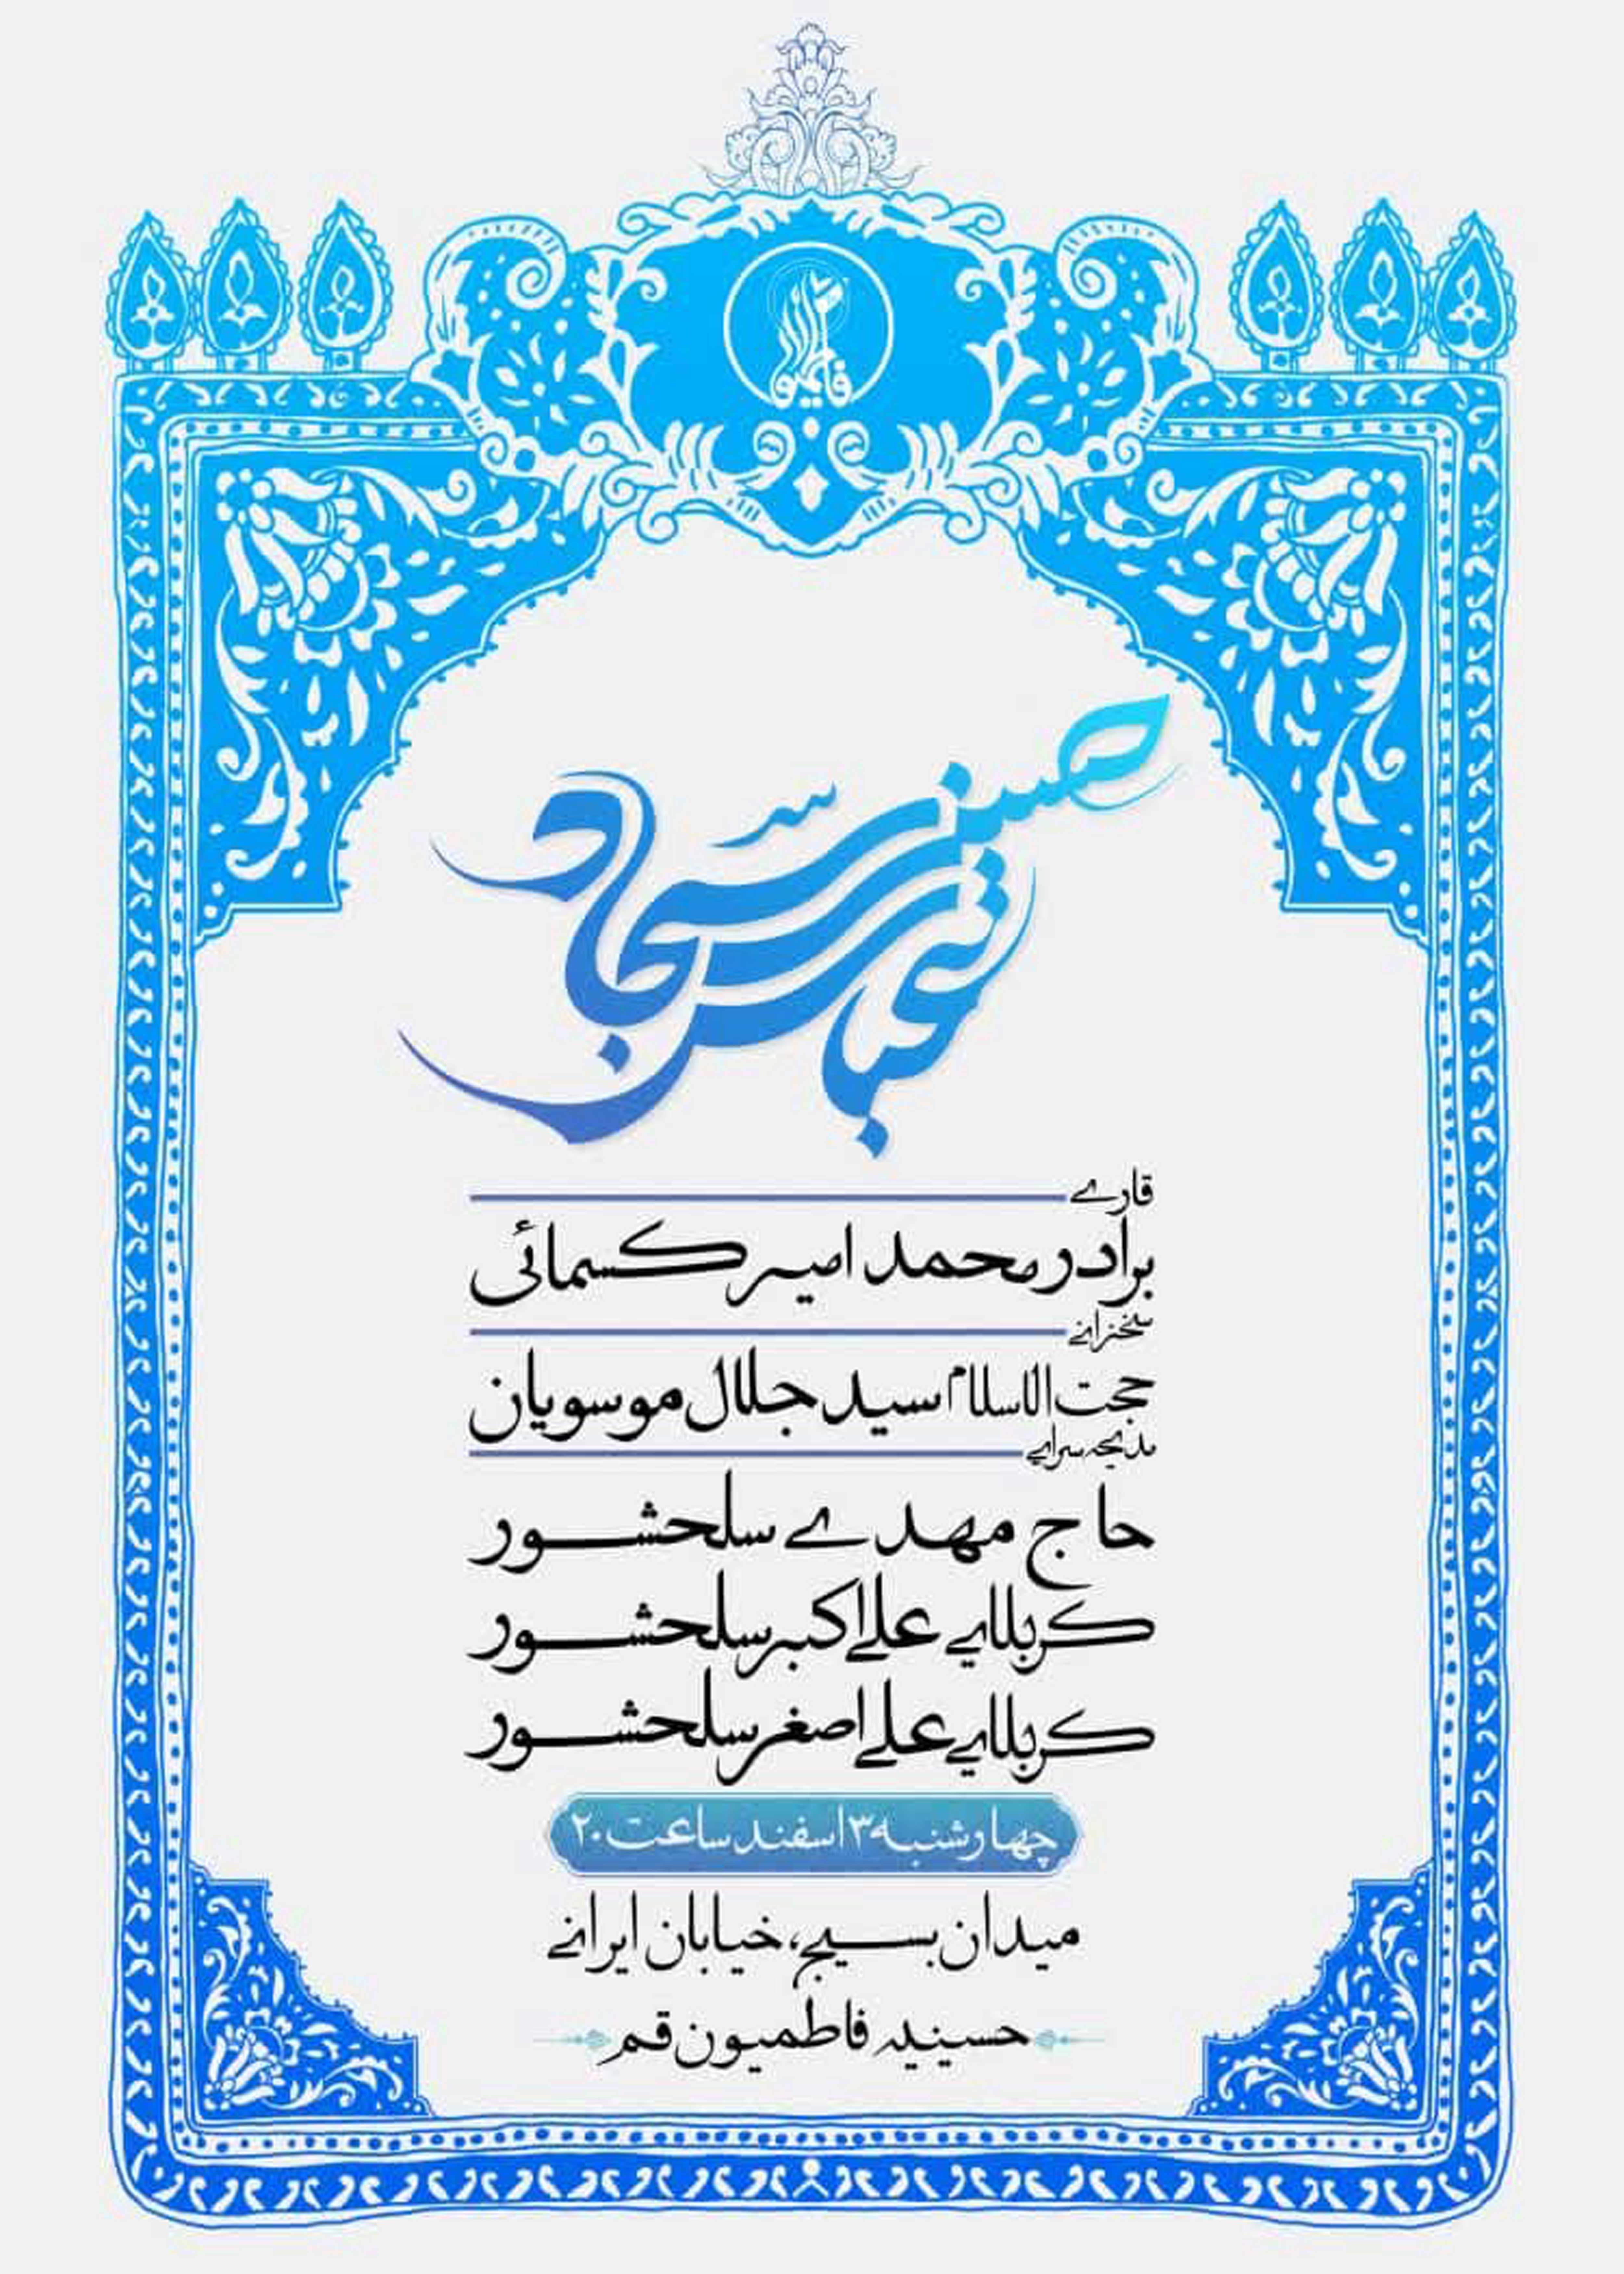 فاطمیون
حسین
سجاد
عباس
قارے
برادر محمد امیر کسمائی
سخنرانے
حجت الاسلام سید جلال موسویان
مدیحه سرایے
حاج مهدے سلحشور
کربلایے علے اکبر سلحشور
کربلایے علے اصغر سلحشور
چهارشنبه ۳ اسفند ساعت ۲۰
میدان بسیج، خیابان ایرانے
حسینیه فاطمیون قم